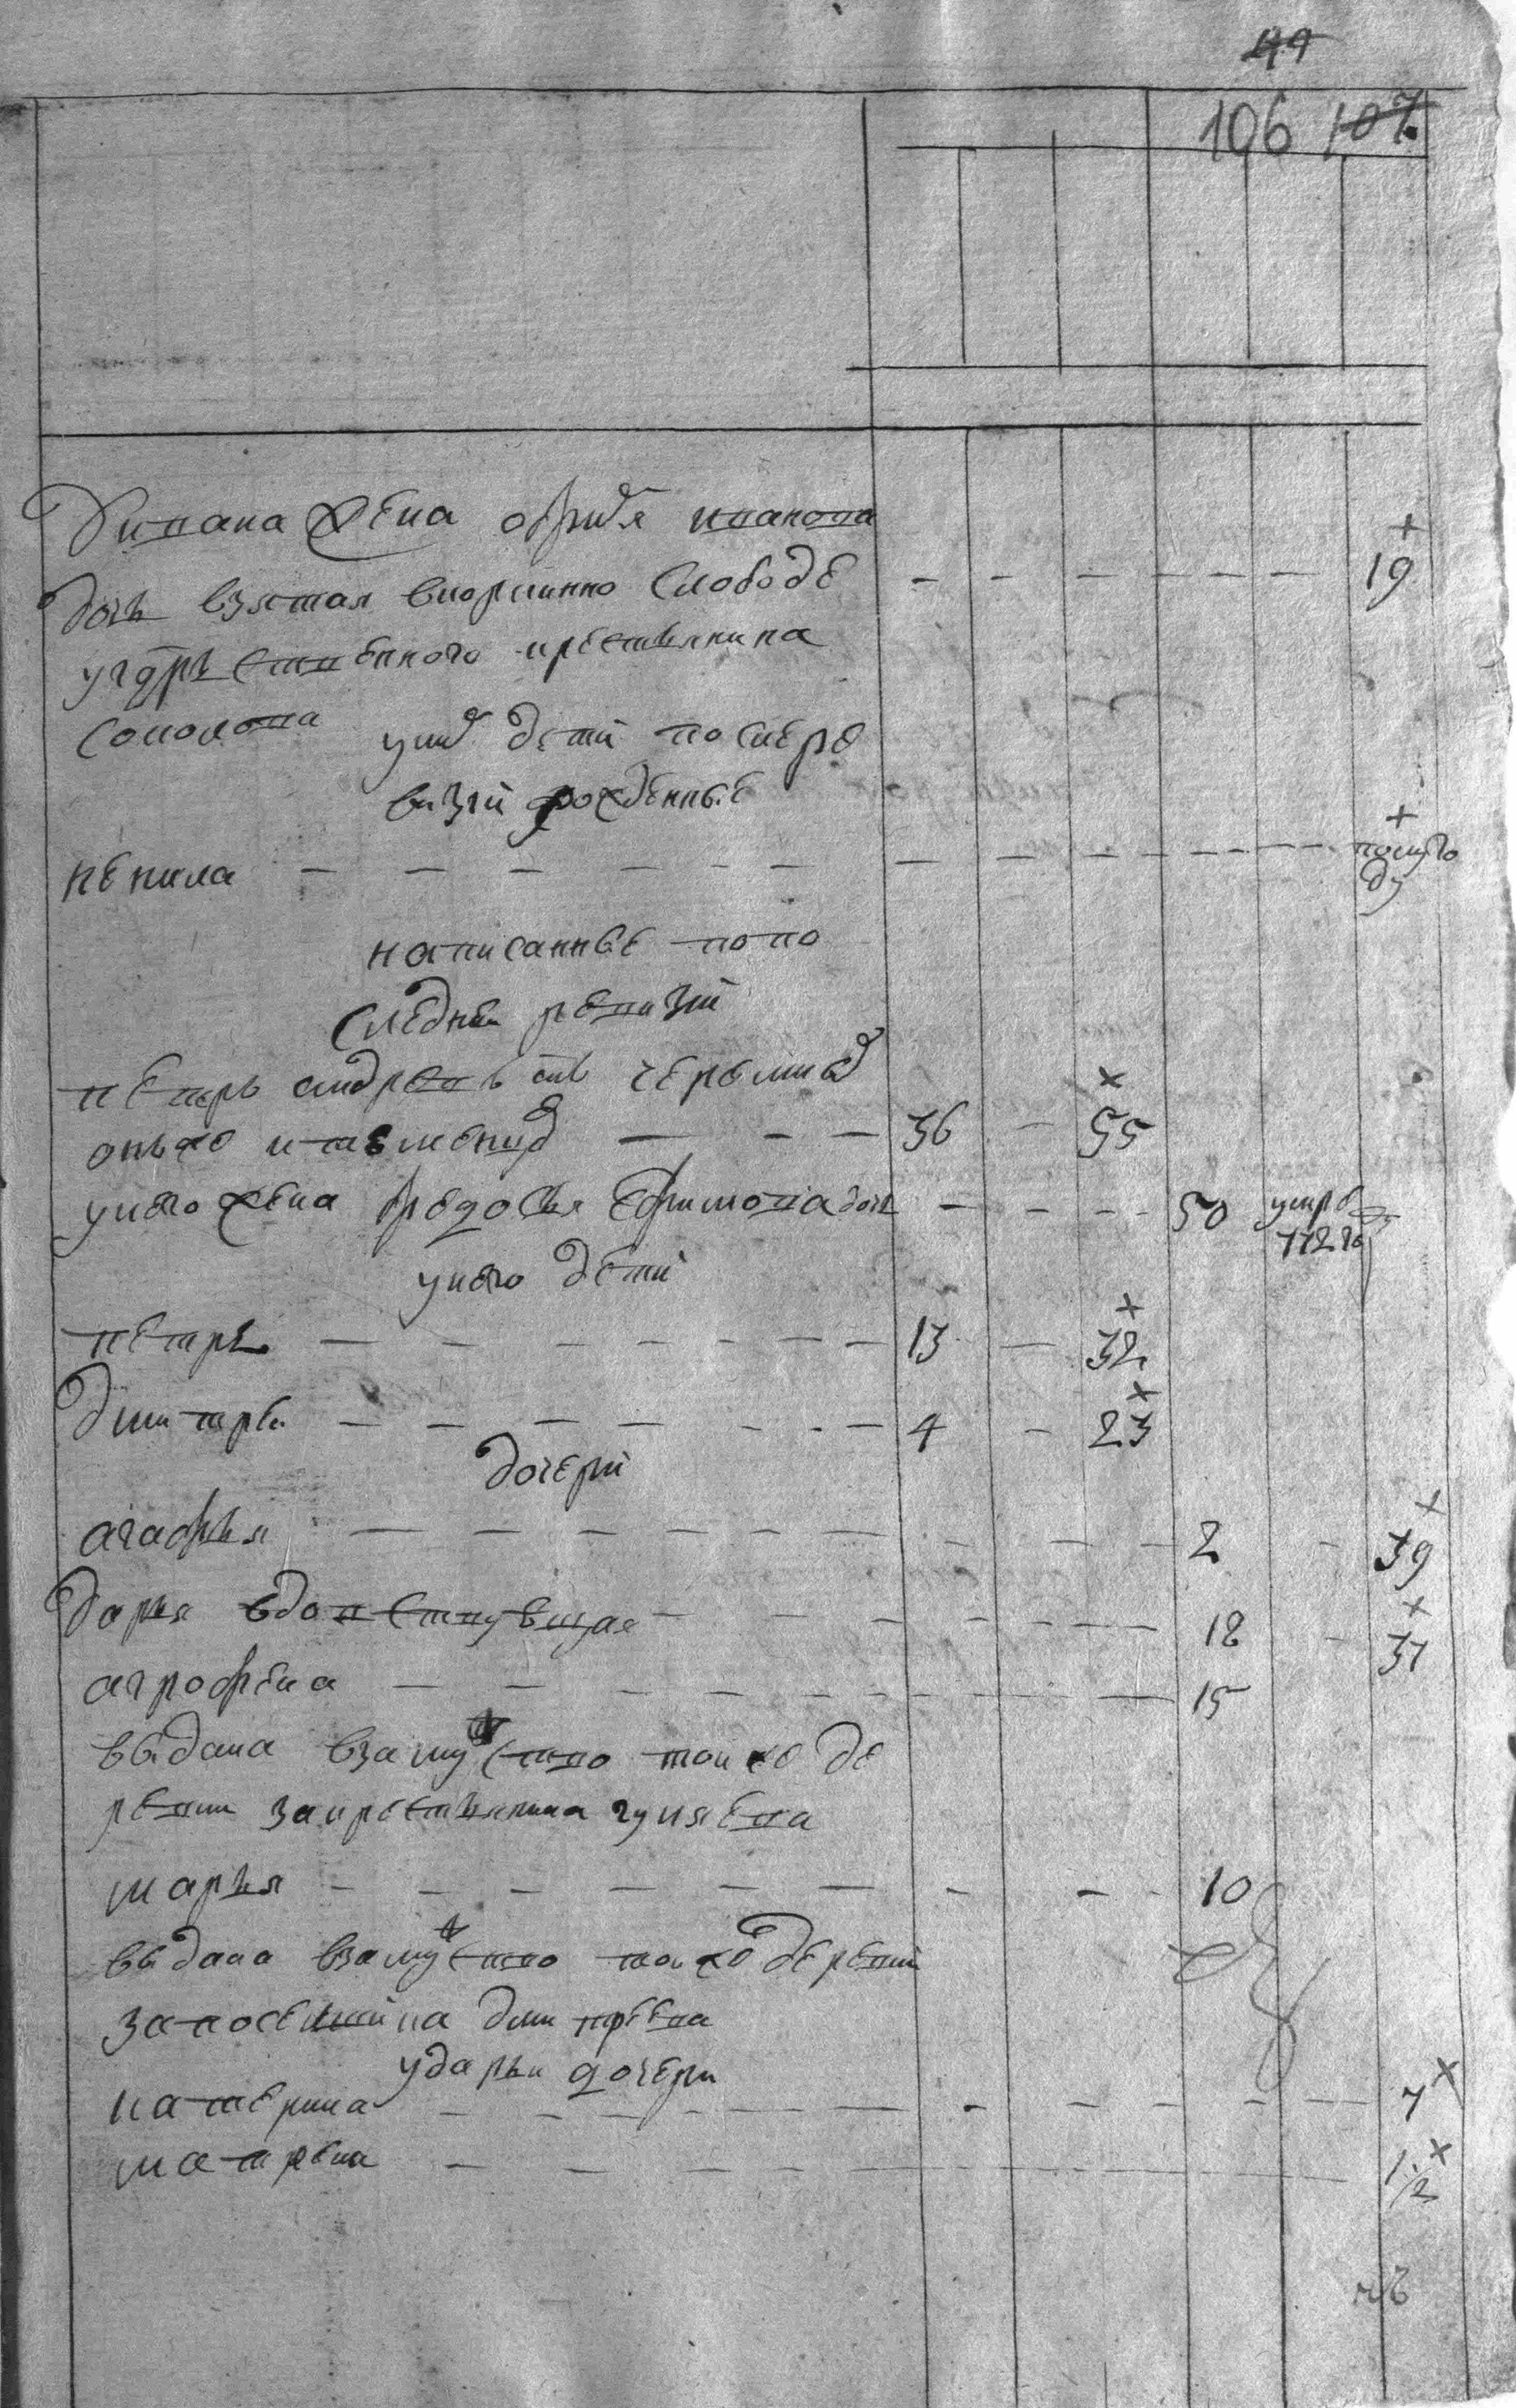 44
106 107
Уивана жена офимья иванова
+
дочь взятая вкормленно слободе - - - - - - 19
угдрьственного крестьянина
соколова
уних дети послере
визии рожденные
+
ненила - - - - - - - - - - - полуго
ду
написанные попо
следней ревизии
петръ андреевъ снъ черемных
+
онъже итюменцов - - - 36 - 55
унего жена федосья Ефимова дочь - - - - 50 умре
772 го
унего дети
+
петръ - - - - - - - 13 - 32
+
дмитреи - - - - - - - 4 - 23
дочери
+
агафья - - - - - - - - - 2 - 39
+
дарья вдовствующая - - - - - - - 18 - 37
агрофена - - - - - - - - 15
выдана взамужство тоиже де
ревни закрестьянина гуляева
марья - - - - - - - - - 10
выдана взамужство тоиже деревни
запоселщика дмитреева
ударьи дочери
катерина - - - - - - - - - - 7 +
матрена - - - - - - - 1/2 +